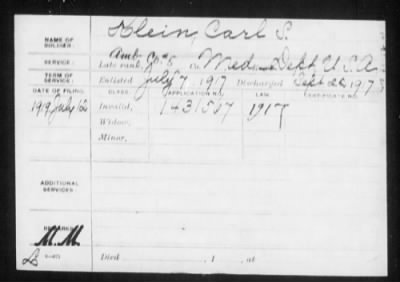 NAME OF SOLDIER: Klein, Carl S.
SERVICE: Amb. Co. #8
Late rank, Co. Med. Dept U.S.A.
TERM OF SERVICE: Enlisted July 7, 1917 Discharged Sept 22, 1917
DATE OF FILING. CLASS. APPLICATION NO. LAW. CERTIFICATE NO.
1919 July 12 Invalid, 1431567 1917
Widow,
Minor,
ADDITIONAL SERVICES:
REMARKS:
M.M.
Died , 1 , at